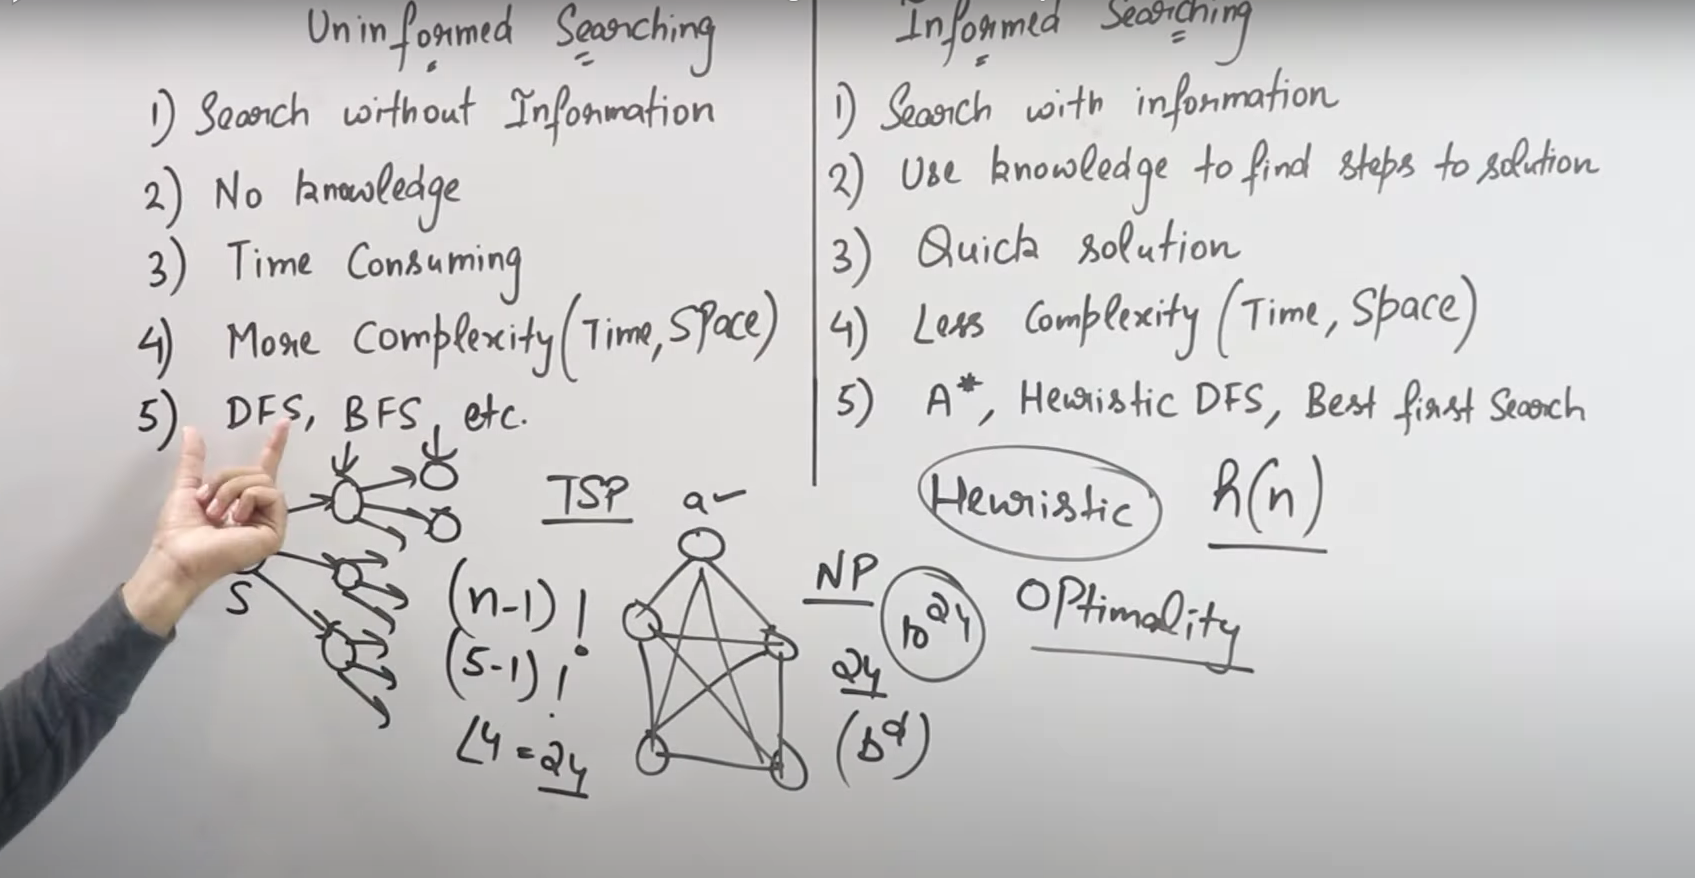 Uninformed Searching
1) Search without Information
2) No knowledge
3) Time Consuming
4) More Complexity (Time, Space)
5) DFS, BFS, etc.
S
TSP
a
(n-1)!
(5-1)!
∠4 = 24
NP
10^24
24
(b^d)
Informed Searching
1) Search with information
2) Use knowledge to find steps to solution
3) Quick solution
4) Less Complexity (Time, Space)
5) A*, Heuristic DFS, Best first Search
Heuristic h(n)
Optimality